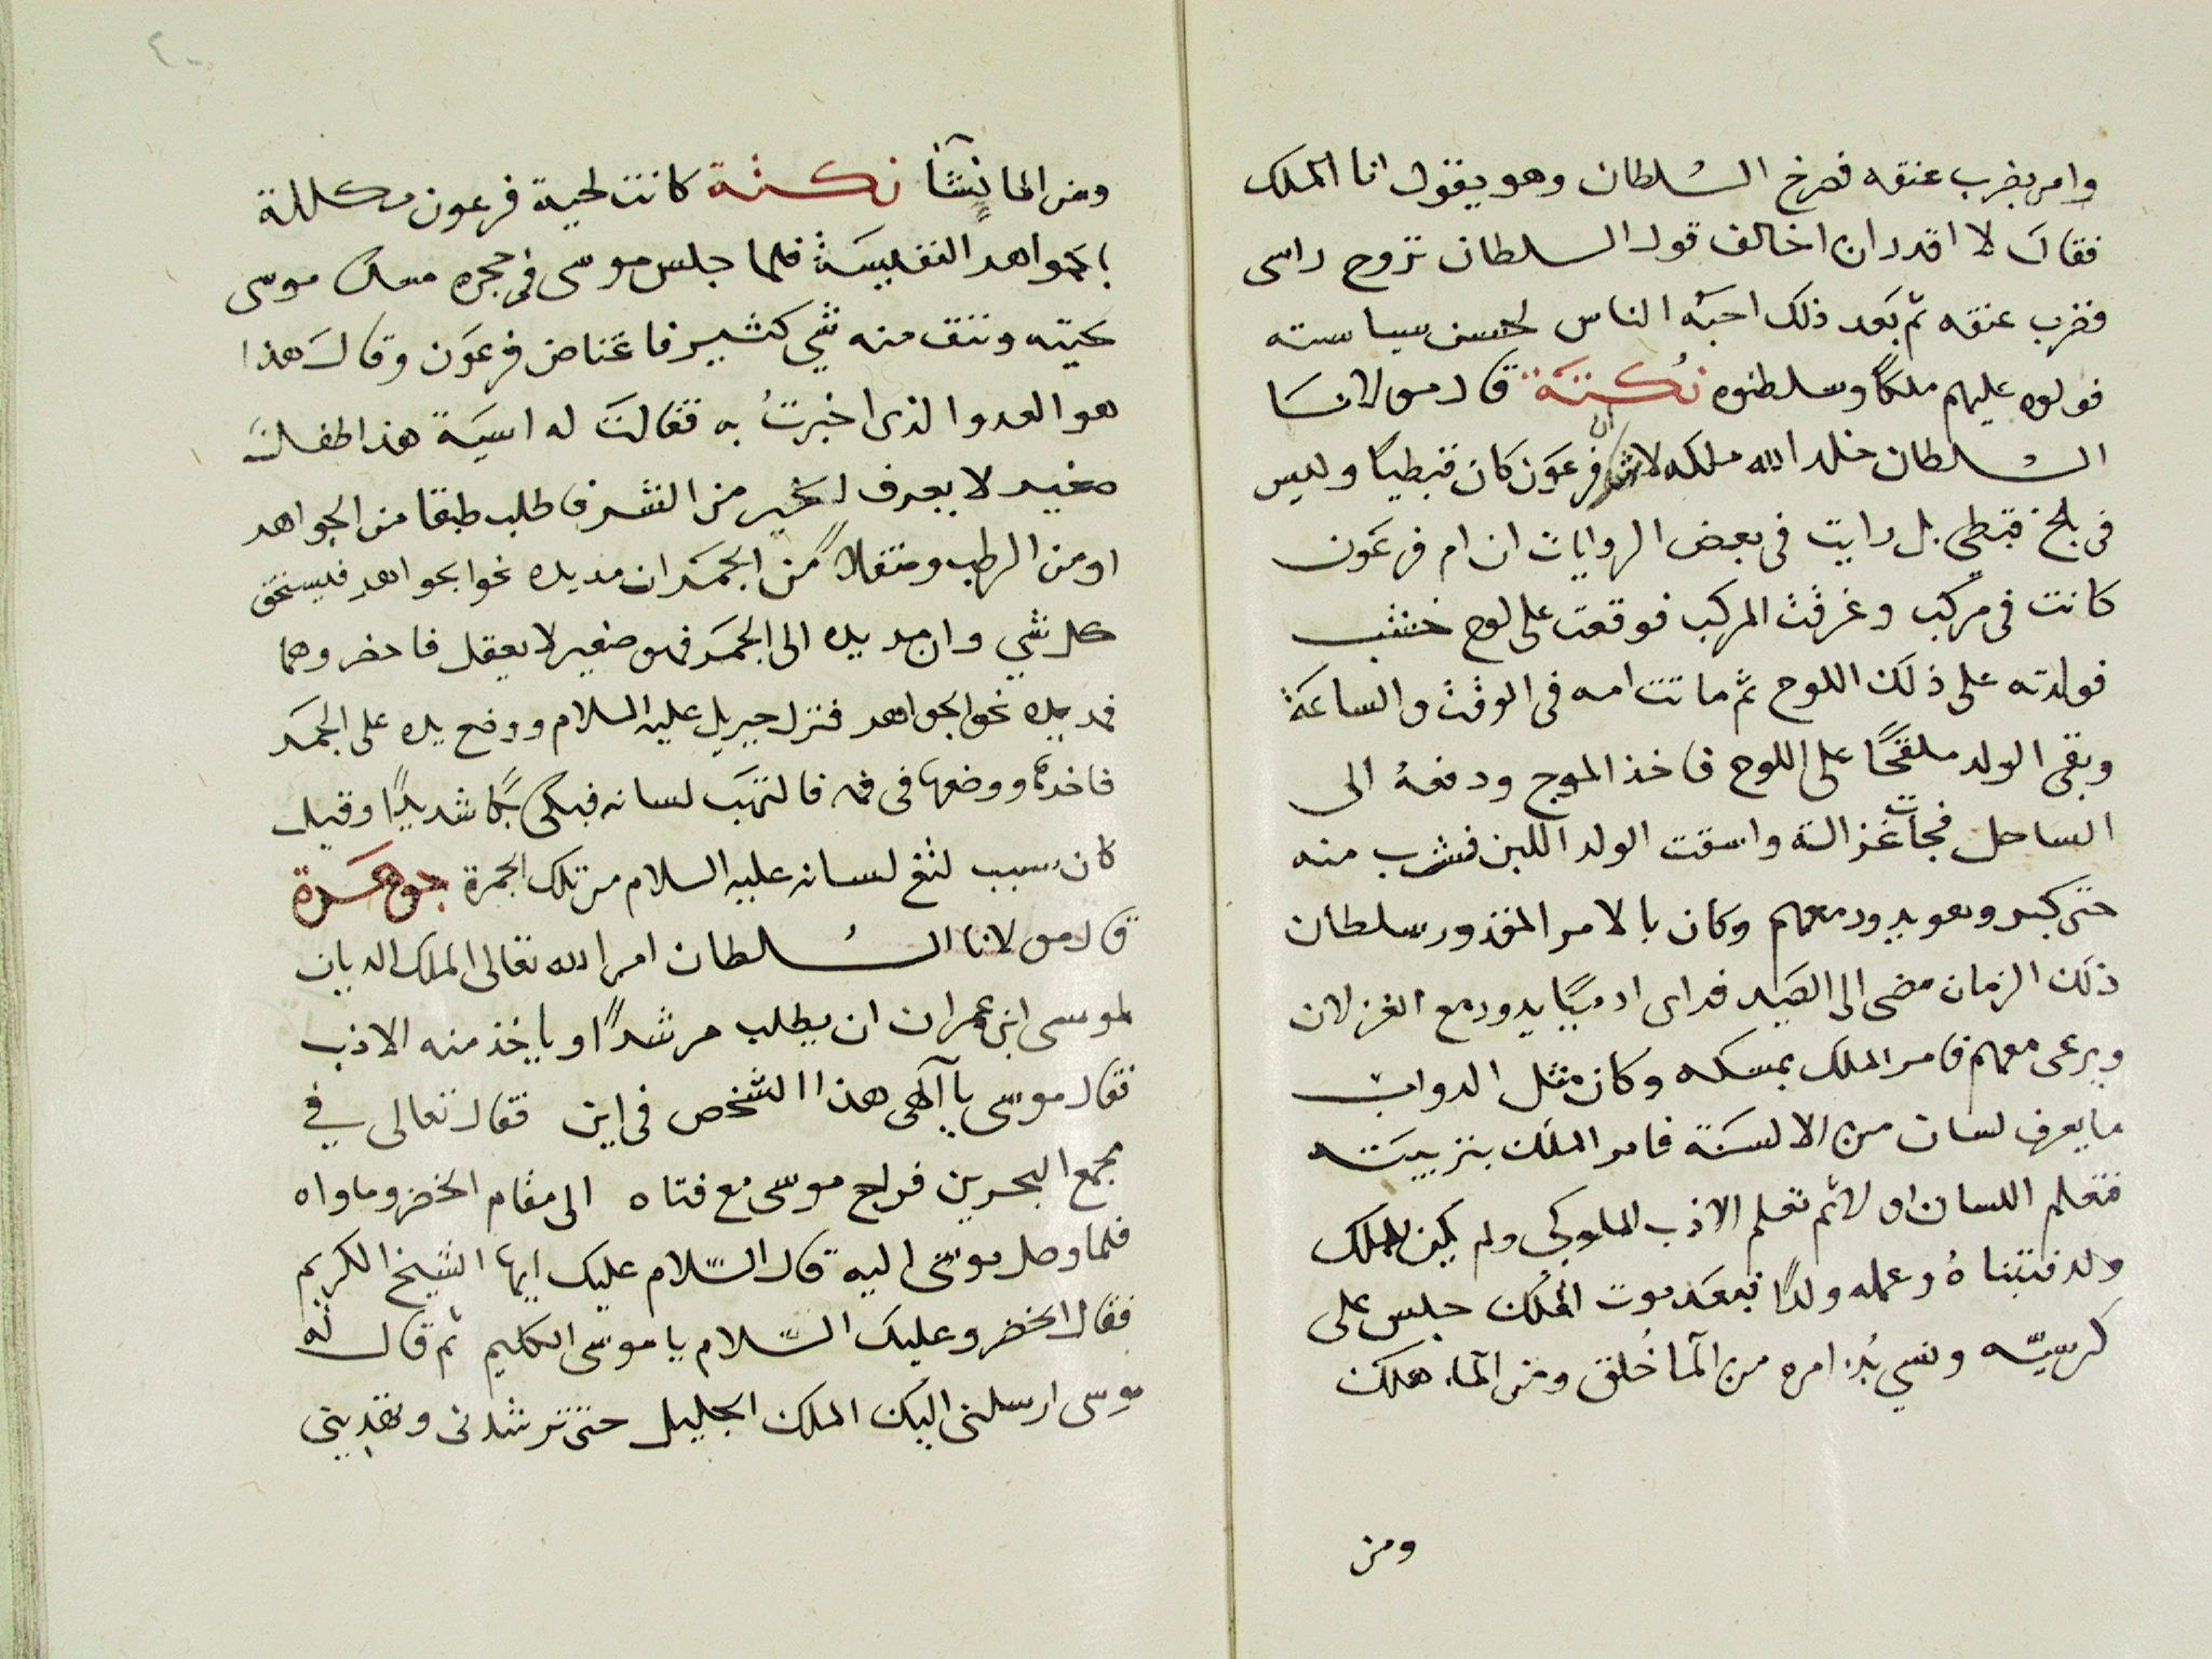 وامر بضرب عنقه فصرخ السلطان وهو يقول انا الملك
فقال لا اقدر ان اخالف قول السلطان تروح راسى
فضرب عنقه ثم بَعد ذلك احبَه الناس لحسن سياسته
فولوه عليهم ملكاً وسلطنوه نُكتَة قال مولانا
السُلطان خلد الله ملكه لا شك ان فرعَون كان قبطياً وليس
فى بلخ قبطى بل رايت فى بعض الروايات ان ام فرعَون
كانت فى مركب وغرقت المركب فوقعت على لوح خشب
فولدته على ذلك اللوح ثم ماتت امه فى الوقت والساعَة
وبقى الولد ملقحًا على اللوح فاخذ الموج ودفعهُ الى
الساحل فجات غزالة واسقت الولد اللبن فشرب منه
حتى كبر وهو يدور معهم وكان بالامر المقدور سلطان
ذلك الزمان مضى الى الصَيد فراى ادميًا يدور مع الغزلان
ويرعى معهم فامر الملك بمسكه وكان مثل الدواب
ما يعرف لسان من الالسَنة فامر الملك بتربيَته
فتعلم اللسان اولا ثم تعلم الادب الملوكى ولم يكن للملك
ولد فتبناهُ وعمله ولدًا فبعَد موت الملك جلس على
كرسيّه ونسي بُدء امره من الما خُلق ومن الماء هلك
ومن
٢٠
ومن الما نشَأ نكتة كانت لحية فرعون مكللة
بالجَواهر النفيسَة فلما جلس موسى فى حجره مسك موسى
لحيته ونتف منه شي كثير فاغتاض فرعَون وقالَ هذا
هو العدو الذى اخبرتُ به فقالتَ له اسيَة هذا طفل
صغير لا يعرف الخير من الشر فاطلب طبقا من الجواهر
او من الرطب ومنقلاً من الجمَر ان مد يده نحو الجواهر فيستحق
كل شي وان مد يده الى الجمَر فهو صغير لا يعقل فاحضروهما
فمد يده نحو الجواهر فنزل جبريل عليه السلام ووضع يده على الجمَر
فاخدها ووضعها فى فمه فالتهَب لسانه فبكى بُكا شديدًا وقيل
كان سبب لثغ لسانه عليه السلام من تلك الجمرة جوهَرة
قال مولانا السُلطان امر الله تعالى الملك الديان
لموسى ابن عمران ان يطلب مرشدًا وياخذ منه الادب
فقال موسى يا آلهى هذا الشخص فى اين فقال تعالى في
مجمع البحرين فراح موسى مع فتاه الى مقام الخضر وماواه
فلما وصل موسى اليه قال السّلام عليك ايها الشيخ الكريم
فقال الخضر وعليك السّلام يا موسى الكليم ثم قال له
موسى ارسلنى اليك الملك الجليل حتى ترشدنى وتهديني